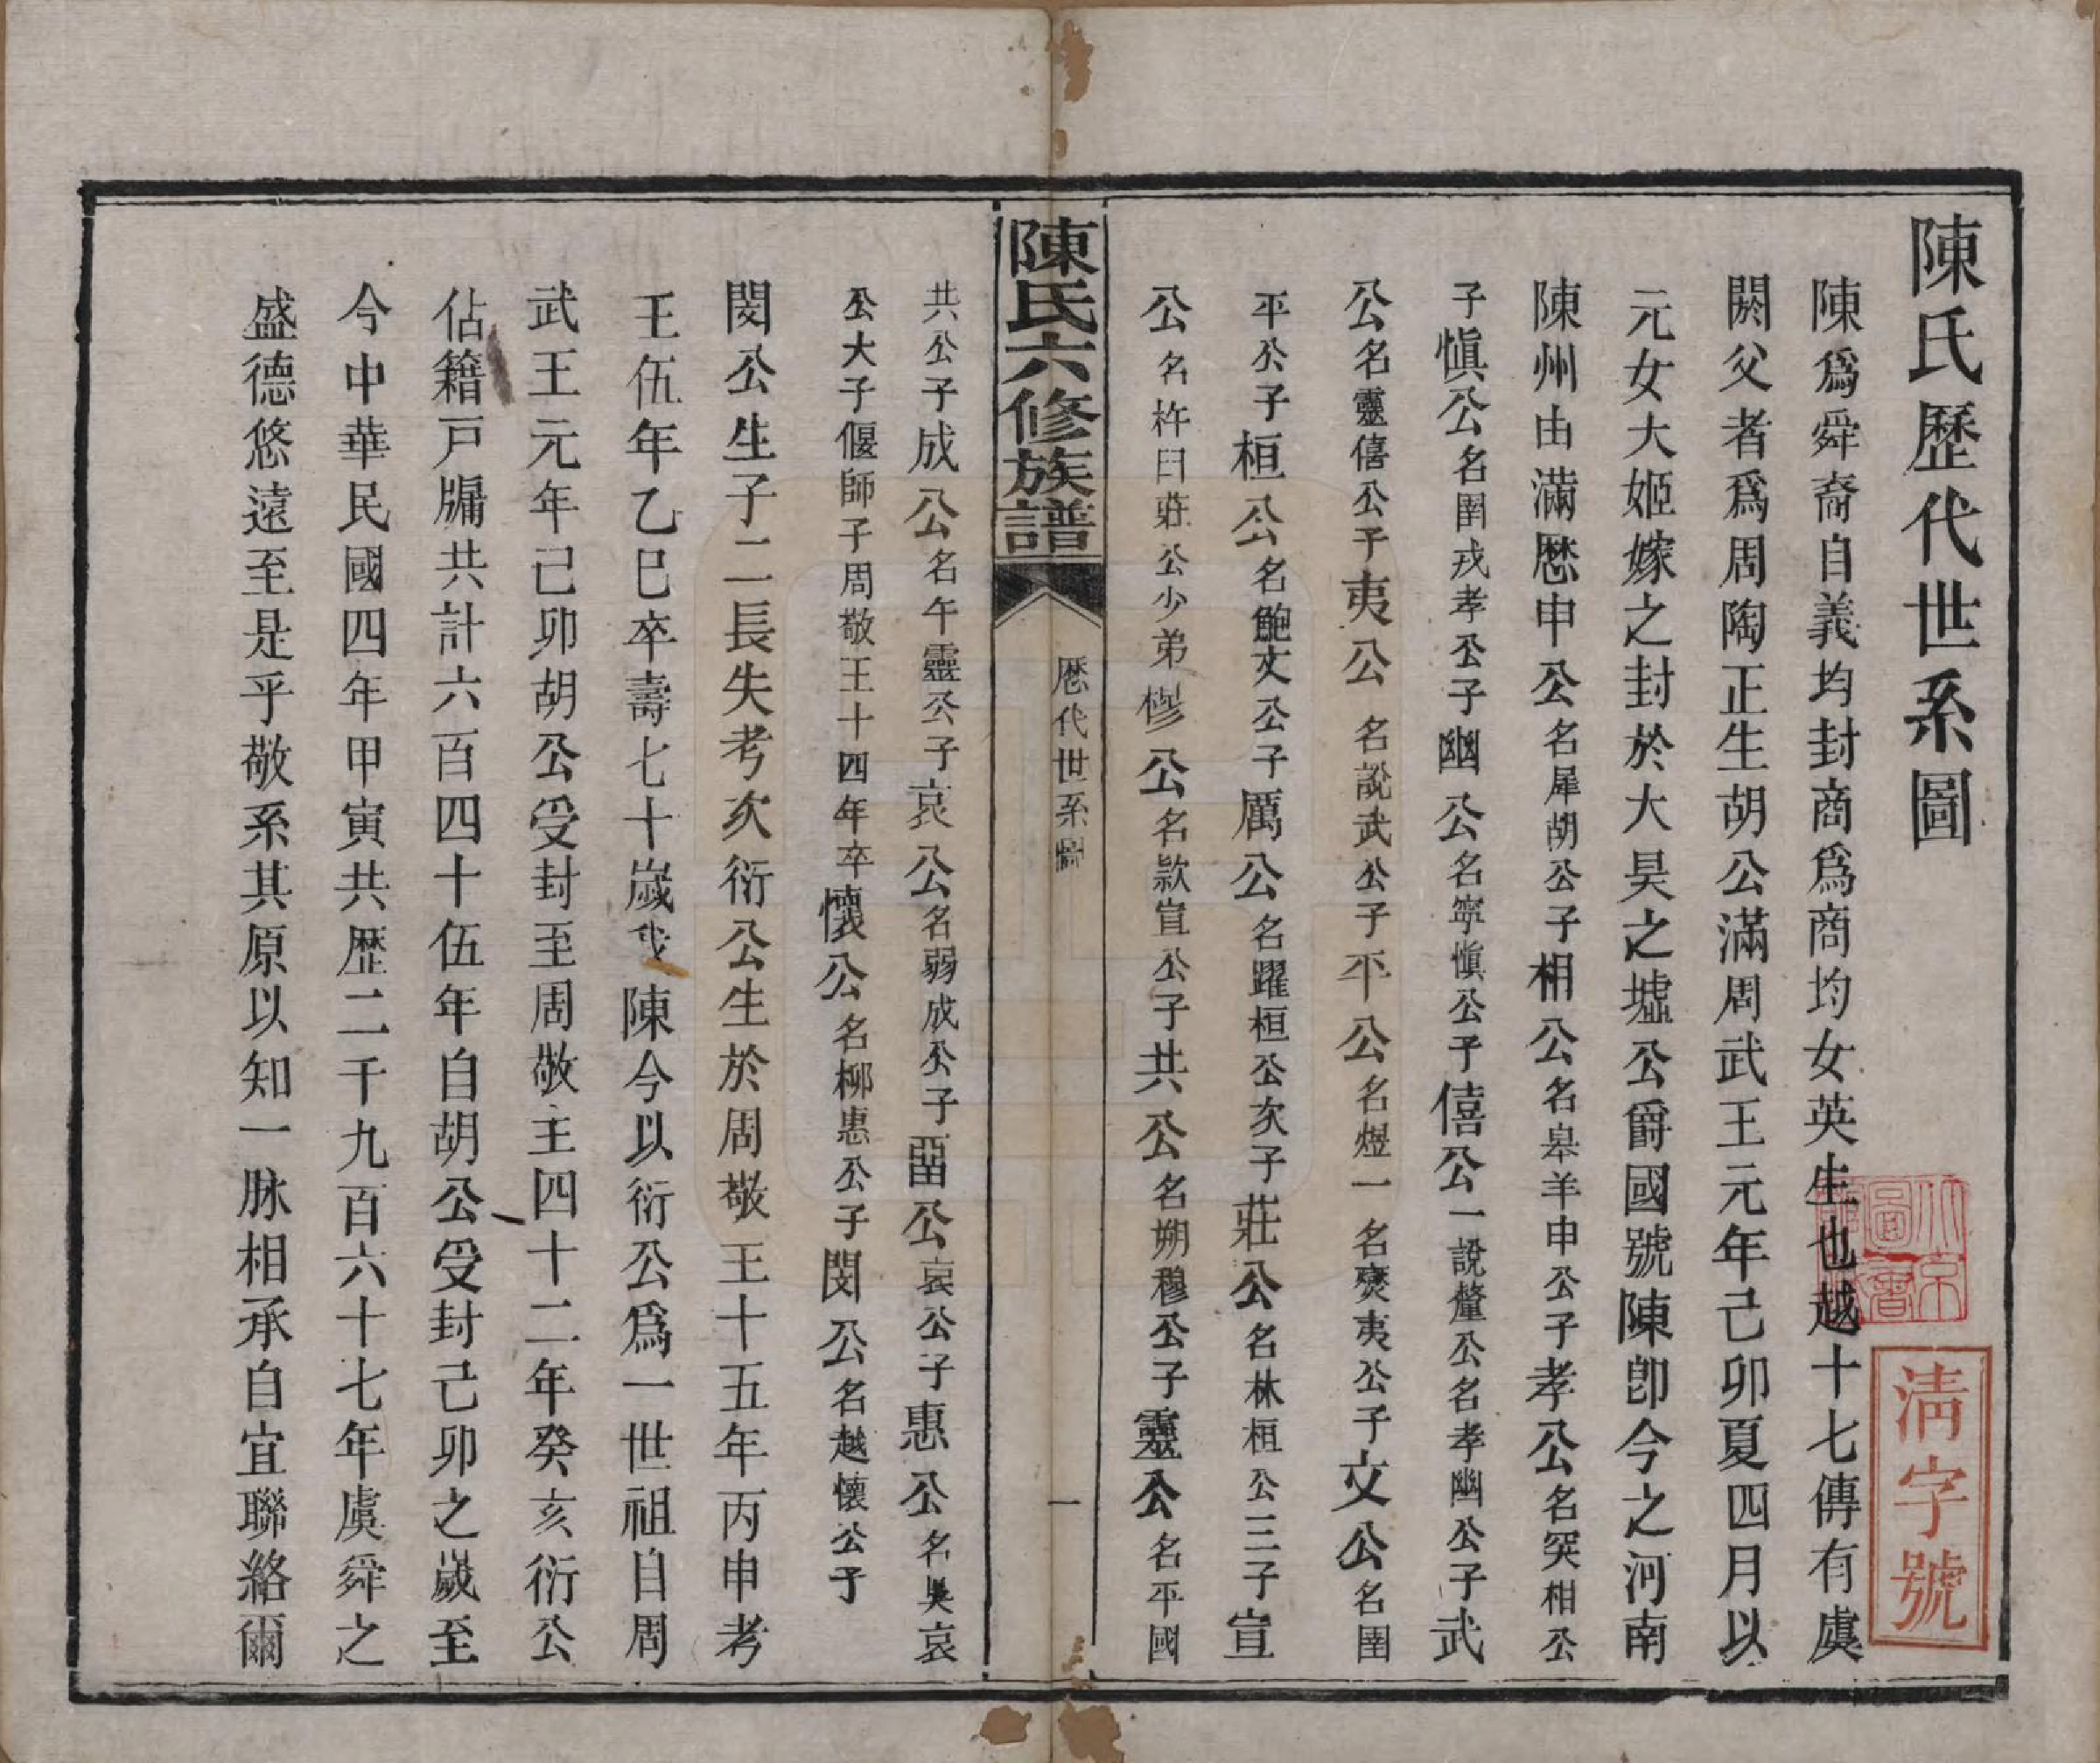 陳氏歷代世系圖
陳爲舜裔自義均封商爲商均女英生也越十七傳有虞
閼父者爲周陶正生胡公滿周武王元年己卯夏四月以
元女大姬嫁之封於大昊之墟公爵國號陳卽今之河南
陳州由滿歷申公名犀胡公子相公名皋羊申公子孝公名突相公
子愼公名圉戎孝公子幽公名寧愼公子僖公一說釐公名孝幽公子武
公名靈僖公子夷公名說武公子平公名煜一名燮夷公子文公名圉
平公子桓公名鮑文公子厲公名躍桓公次子莊公名林桓公三子宣
公名杵臼莊公少弟穆公名款宣公子共公名朔穆公子靈公名平國
陳氏六修族譜
歷代世系圖
一
共公子成公名午靈公子哀公名弱成公子畱公哀公子惠公名吳哀
公大子偃師子周敬王十四年卒懷公名柳惠公子閔公名越懷公子
閔公生子二長失考次衍公生於周敬王十五年丙申考
王伍年乙巳卒壽七十歲我陳今以衍公爲一世祖自周
武王元年己卯胡公受封至周敬王四十二年癸亥衍公
佔籍戸牖共計六百四十伍年自胡公受封己卯之歲至
今中華民國四年甲寅共歷二千九百六十七年虞舜之
盛德悠遠至是乎敬系其原以知一脉相承自宜聯絡爾
清字號